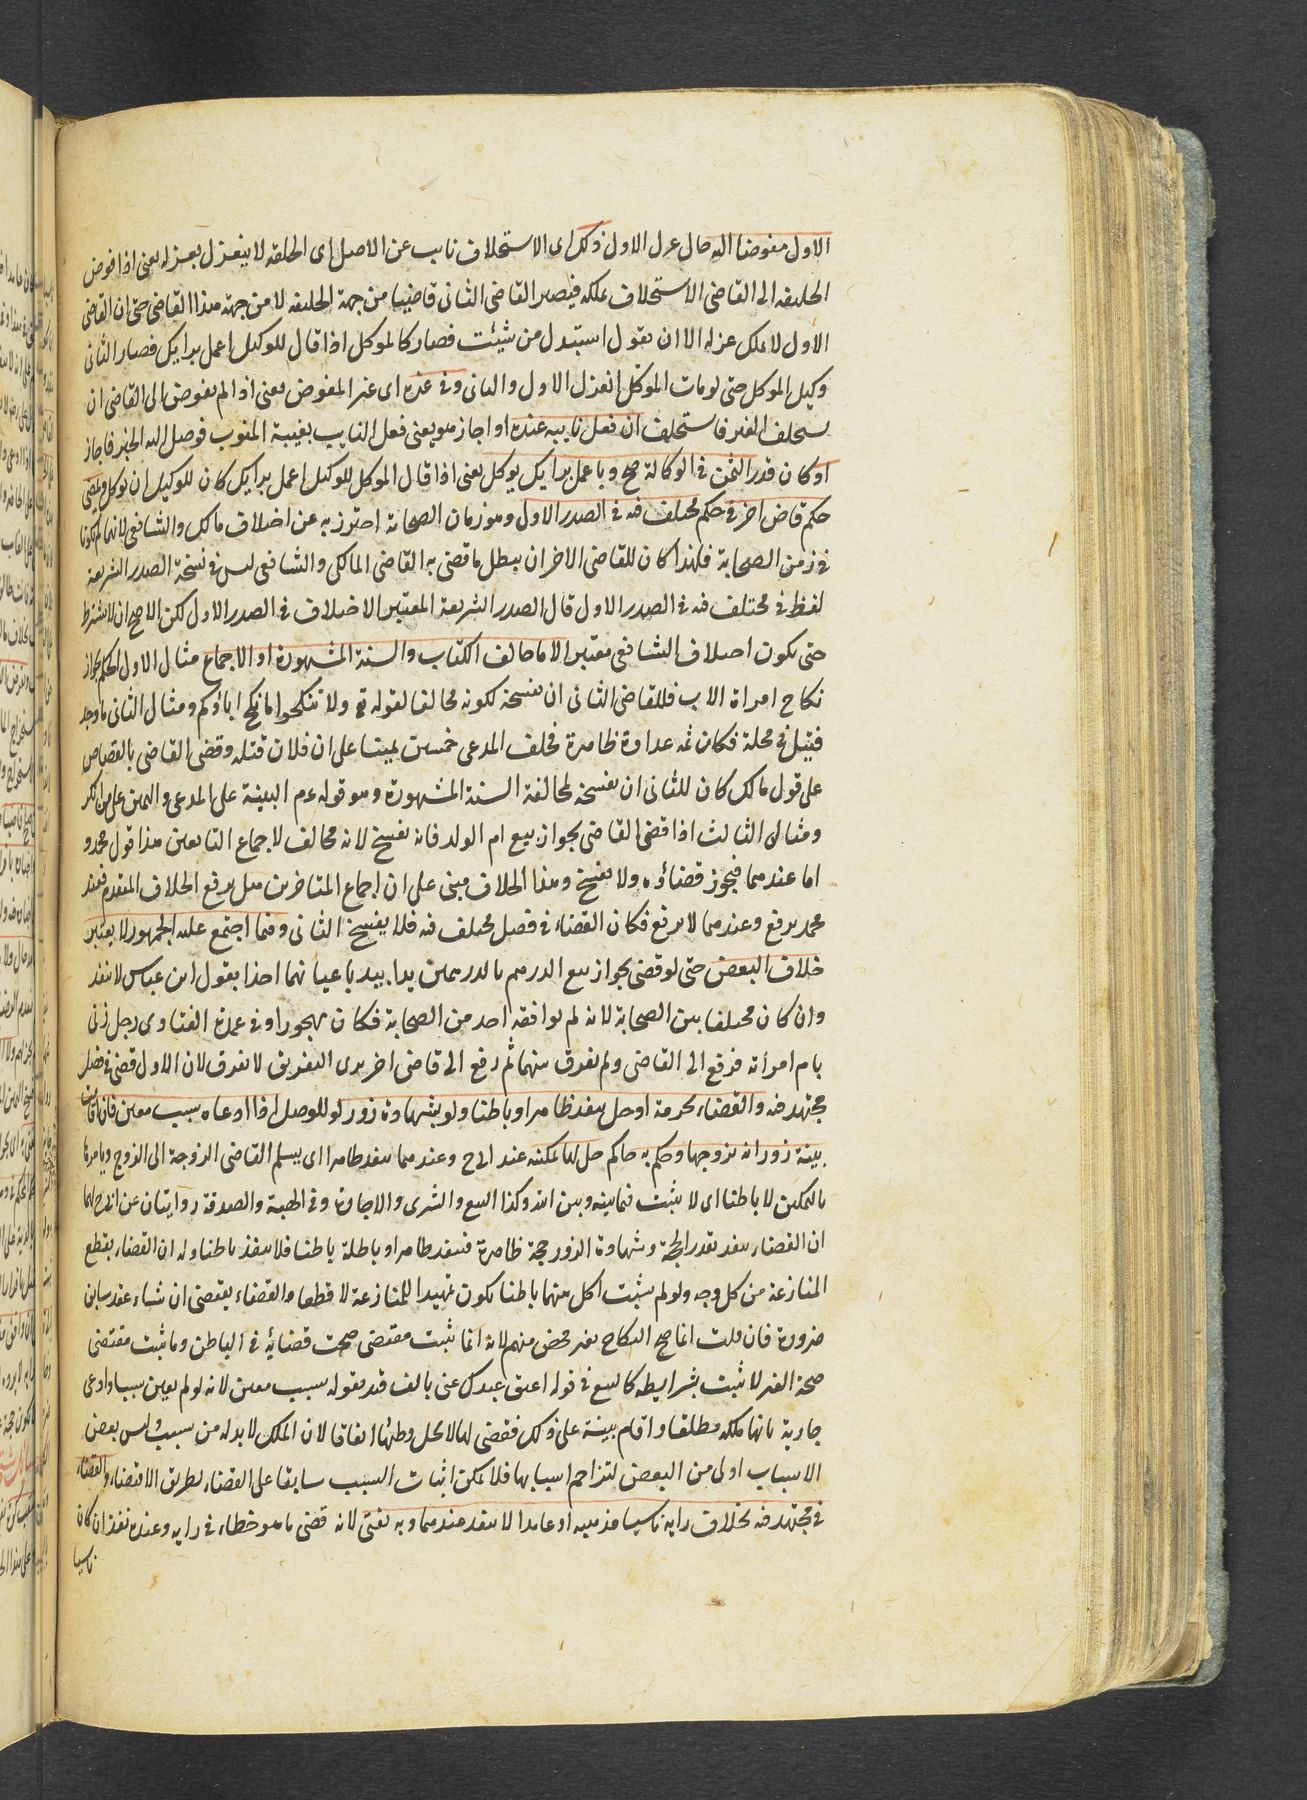 الاول مفوضا اليه حال عزل الاول ذلك اى الاستخلاف نايب عن الاصل اى الخليفه لا ينعزل بعزله يعنى اذا فوض
الخليفه الى القاضى الاستخلاف يملكه فيصير القاضى الثانى قاضيا من جهة الخليفه لا من جهة هذا القاضى حتى ان القاضى
الاول لا يملك عزله الا ان يقول استبدل من شيئت فصار كالموكل اذا قال للوكيل اعمل برايك فصار الثانى
وكيل الموكل حتى لو مات الموكل انعزل الاول والثانى وفى غيره اى غير المفوض يعنى اذا لم يفوض الى القاضى ان
يستخلف الغير فاستخلف ان فعل نايبه عنده او اجاز هو يعنى فعل النايب بغيبة المنوب فوصل اليه الخبر فاجاز
او كان قدر الثمن فى الوكالة صح وباعمل برايك يوكل يعنى اذا قال الموكل للوكيل اعمل برايك كان للوكيل ان يوكل ويمضى
حكم قاض اخر فى حكم مختلف فيه فى الصدر الاول وهو زمان الصحابة احترز به عن اختلاف مالك والشافعى لانهما لم يكونا
فى زمن الصحابة فلهذا كان للقاضى الاخر ان يبطل ما قضى به القاضى المالكى والشافعى ليس فى نسخة الصدر الشريعة
لفظ فى مختلف فيه فى الصدر الاول قال الصدر الشريعة المعتبر الاختلاف فى الصدر الاول لكن الاصح ان لا يشترط
حتى يكون اختلاف الشافعى معتبرا الا ما خالف الكتاب والسنة المشهورة او الاجماع مثال الاول الحكم بجواز
نكاح امراة الاب فللقاضى الثانى ان يفسخه لكونه مخالفا لقوله تع ولا تنكحوا ما نكح اباؤكم ومثال الثانى ما وجد
قتيل فى محلة فكان ثمه عداوة ظاهرة فحلف المدعى خمسين يمينا على ان فلان قتله وقضى القاضى بالقصاص
على قول مالك كان للثانى ان يفسخه لمخالفة السنة المشهورة وهو قوله عم البينة على المدعى واليمين على من انكر
ومثال الثالث اذا قضى القاضى بجواز بيع ام الولد فانه يفسخ لانه مخالف لاجماع التابعين هذا قول محمد و
اما عندهما فيجوز قضاؤه ولا يفسخ وهذا الخلاف مبنى على ان اجماع المتاخرين هل يرفع الخلاف المتقدم فعند
محمد يرفع وعندهما لا يرفع فكان القضاء فى فصل مختلف فيه فلا يفسخ الثانى وفيما اجتمع عليه الجمهور لا يعتبر
خلاف البعض حتى لو قضى بجواز بيع الدرهم بالدرهمين يدا بيد باعيانهما اخذا بقول ابن عباس لا ينفذ
وان كان مختلفا بين الصحابة لانه لم يوافقه احد من الصحابة فكان مهجورا وفى عمدة الفتاوى رجل زنى
بام امرأته فرفع الى القاضى ولم يفرق بينهما ثم رفع الى قاضى اخر يرى التفريق لا يفرق لان الاول قضى فى فصل
مجتهد فيه والقضاء بحرمة او حل ينفذ ظاهرا وباطنا ولو بشهادة زور للوصل اذا ادعاه بسبب معين فان اقامت
بينة زور انه تزوجها وحكم به حاكم حل لها تمكينه عند ابى ح وعندهما ينفذ ظاهرا اى يسلم القاضى الزوجة الى الزوج ويامرها
بالتمكين لا باطنا اى لا يثبت فيما بينه وبين الله وكذا البيع والشرى والاجارة وفى الهبة والصدقة روايتان عن ابى ح لهما
ان القضاء ينفذ بقدر الحجة وشهادة الزور حجة ظاهرة فينفذ ظاهرا وباطلة باطنا فلا ينفذ باطنا وله ان القضاء يقطع
المنازعة من كل وجه ولو لم يثبت الحل بينهما باطنا يكون تمهيدا للمنازعة لا قطعا والقضاء يقتضى انشاء عقد سابق
ضرورة فان قلت انما صح النكاح بغير محضر منهم لانه انما ثبت مقتضى صحت قضائه فى الباطن وما ثبت مقتضى
صحة الغير لا يثبت بشرايطه كالبيع فى قوله اعتق عبدك عنى بالف قيد بقوله بسبب معين لانه لو لم يعين سببا وادعى
جارية بانها ملكه مطلقا واقام بينة على ذلك فقضى لها لا يحل وطئها اتفاقا لان الملك لا بد له من سبب وليس بعض
الاسباب اولى من البعض لتزاحم اسبابها فلا يمكن اثبات السبب سابقا على القضاء بطريق الاقتضاء والقضاء
فى مجتهد فيه بخلاف رايه ناسيا مذهبه او عامدا لا ينفذ عندهما وبه يفتى لانه قضى بما هو خطاء فى رايه وعنده نفذ ان كان
ناسيا